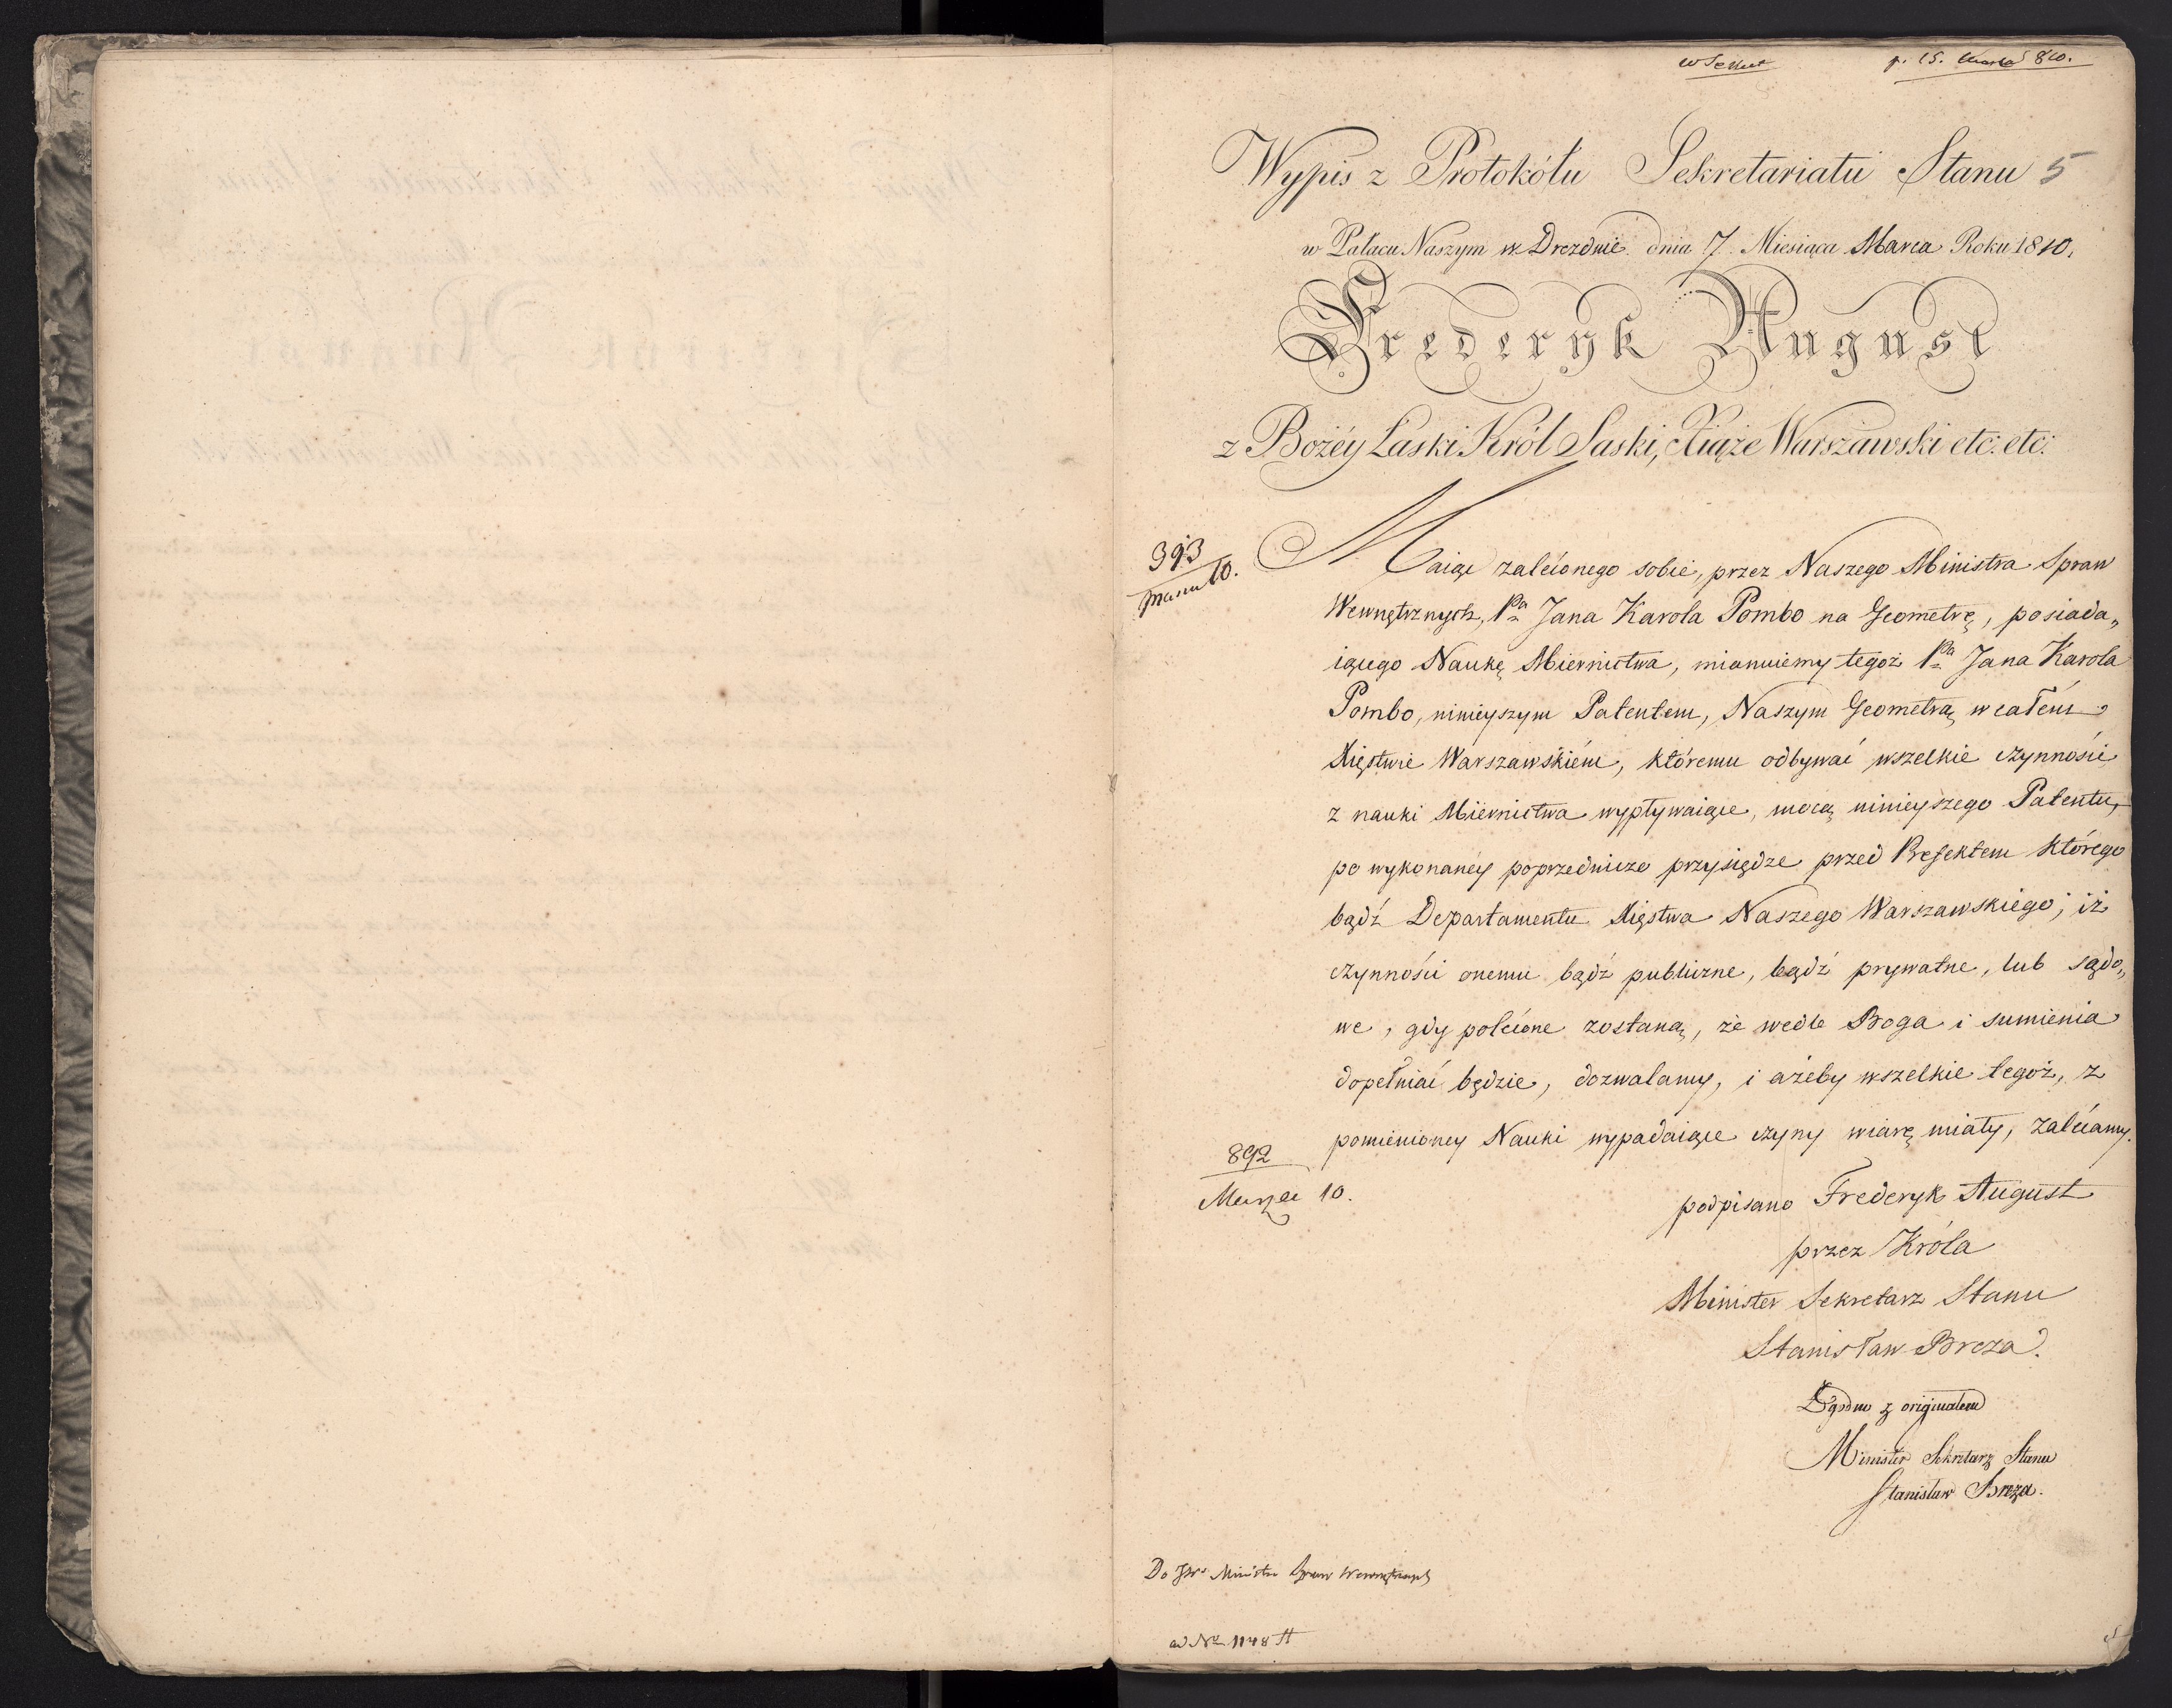 p. 15. Marca 810.
Wypis z Protokółu Sekretariatu Stanu 5
w Pałacu Naszym w Dreznie dnia 7. Miesiąca Marca Roku 1810.
Frederyk August
z Bożéy Łaski Król Saski, Xiąże Warszawski etc: etc:
393
10.
Maiąc zalecionego sobie, przez Naszego Ministra Spraw
Wewnętrznych, Pa Jana Karola Pombo na Geometrę, posiada„
iącego Naukę Miernictwa, mianuiemy tegoż Pa Jana Karola
Pombo, ninieyszym Patentem, Naszym Geometrą w całém
Xięstwie Warszawskiém, któremu odbywać wszelkie czynnoście
z nauki Miernictwa wypływaiące, mocą ninieyszego Patentu,
po wykonanéy poprzedniczo przysiędze przed Prefektem którego
bądź Departamentu Xięstwa Naszego Warszawskiego; iż
czynności onemu bądź publiczne, bądź prywatne, lub sądo„
we, gdy polecone zostaną, że wedle Boga i sumienia
dopełniać będzie, dozwalamy, i ażeby wszelkie tegoż, z
pomienioney Nauki wypadaiące czyny wiarę miały, zalecamy.
892
Marca 10.
podpisano Frederyk August
przez Króla
Minister Sekretarz Stanu
Stanisław Breza.
Zgodno z originałem
Minister Sekretarz Stanu
Stanisław Breza.
Do JWo Ministra Spraw Wewnętrznych
ad No 1148